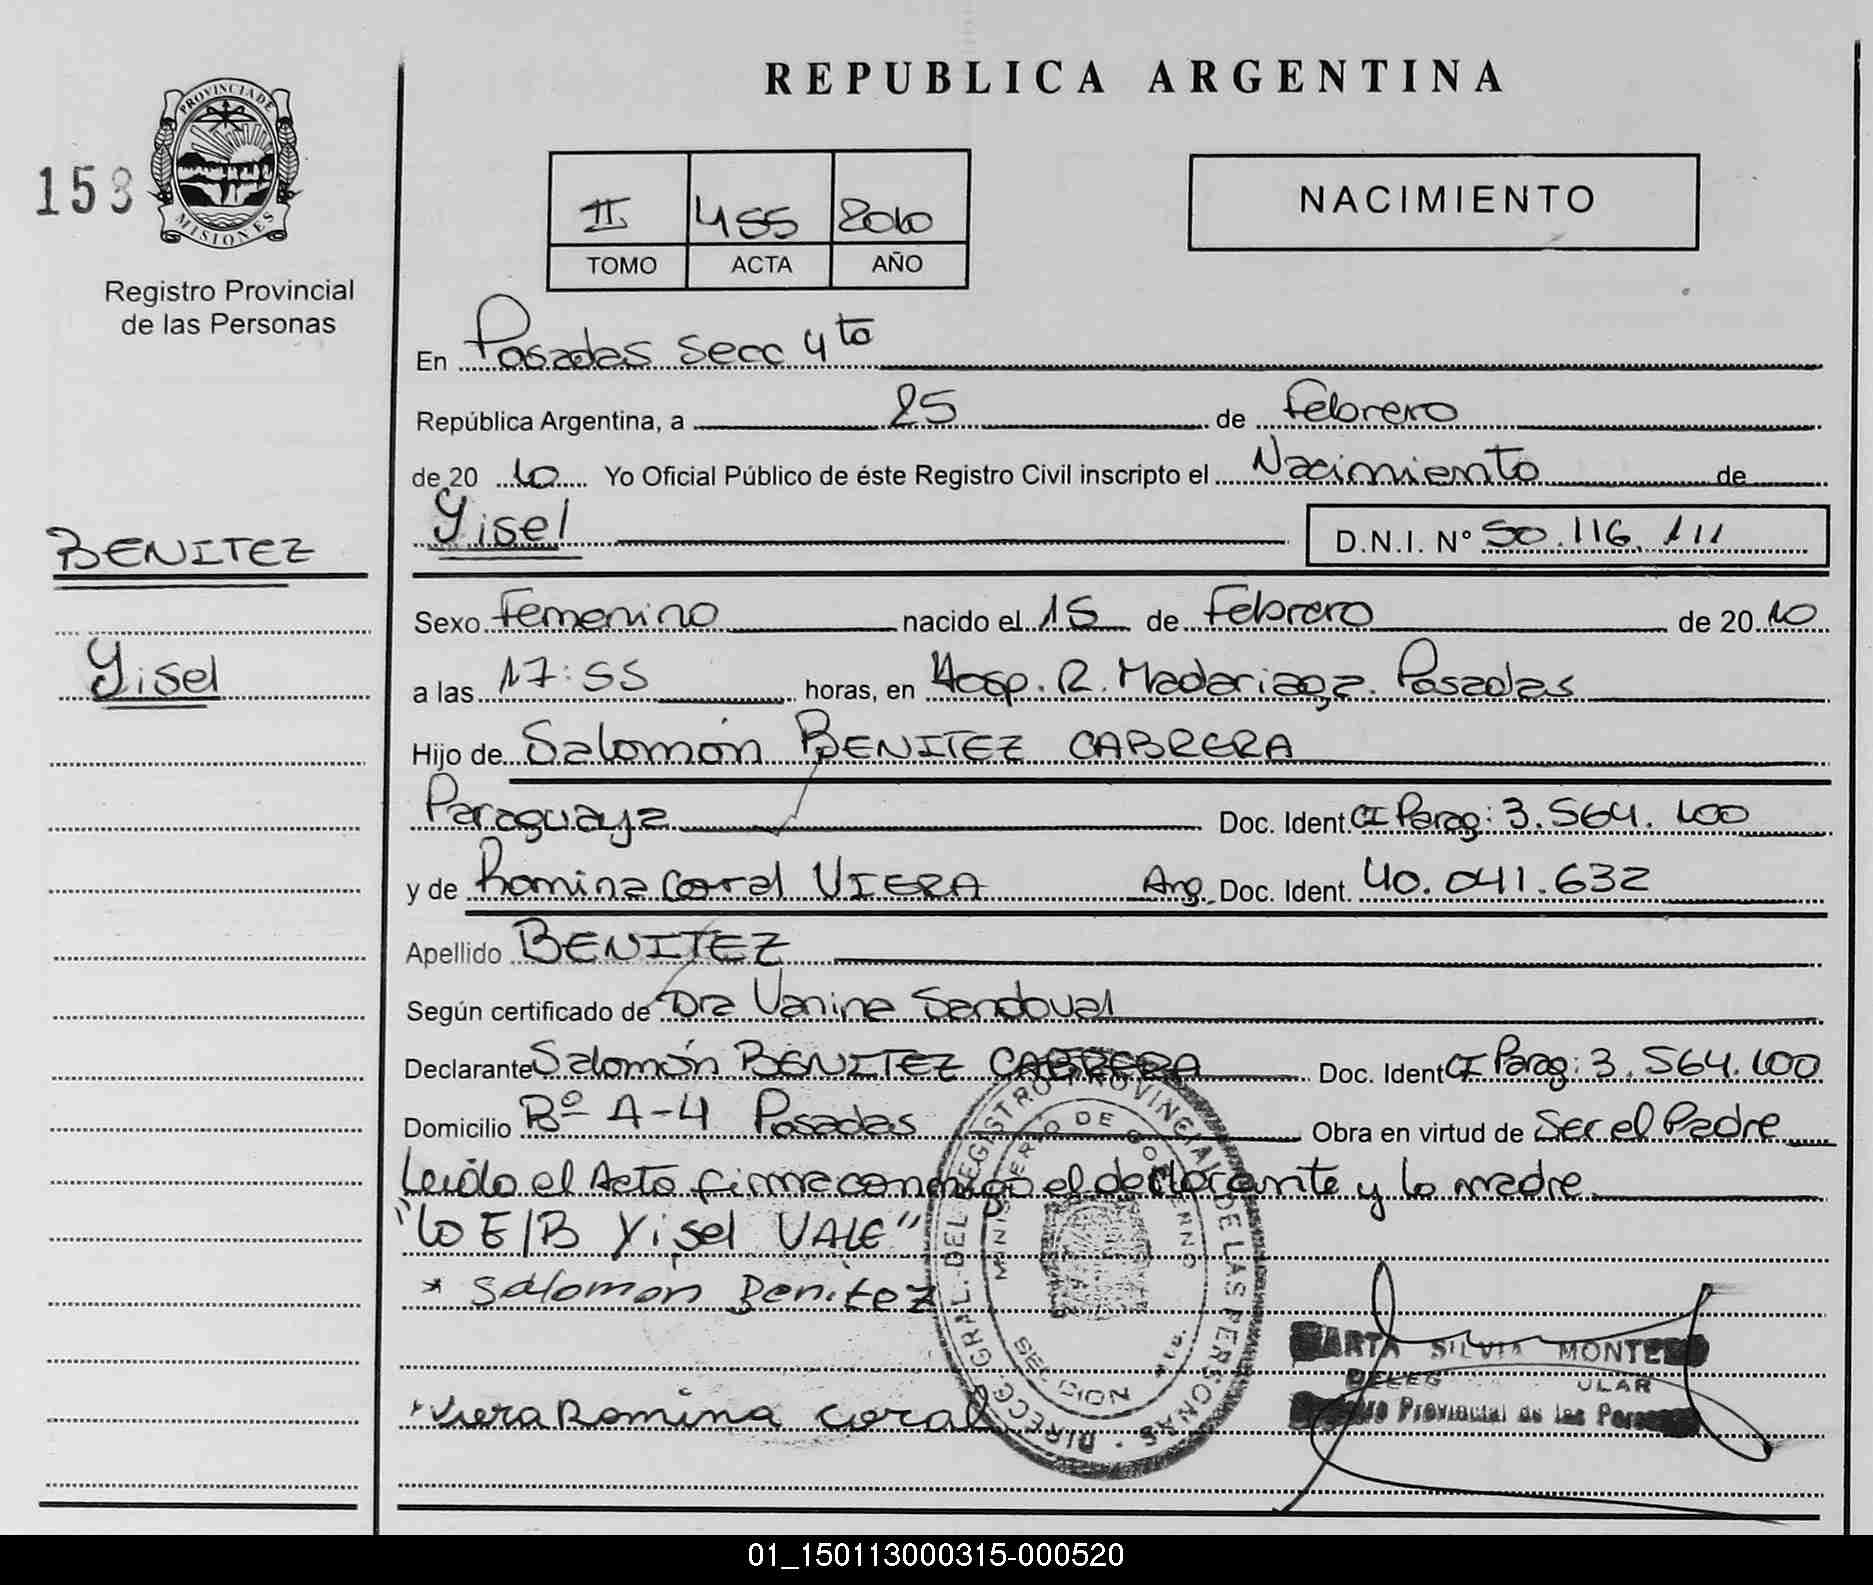 REPUBLICA ARGENTINA
PROVINCIA DE
MISIONES
153
Registro Provincial
de las Personas
II 455 2010
TOMO ACTA AÑO
NACIMIENTO
En Posadas Secc 4ta
República Argentina, a 25 de Febrero
de 20 10 Yo Oficial Público de éste Registro Civil inscripto el Nacimiento de
Yisel D.N.I. N° 50.116.111
BENITEZ
Yisel
Sexo Femenino nacido el 15 de Febrero de 20 10
a las 17:55 horas, en Hosp. R. Madariaga. Posadas
Hijo de Salomón BENITEZ CABRERA
Paraguaya Doc. Ident. CI Parag: 3.564.100
y de Romina Coral VIERA Arg. Doc. Ident. 40.041.632
Apellido BENITEZ
Según certificado de Dra Vanina Sandoval
Declarante Salomón BENITEZ CABRERA Doc. Ident CI Parag: 3.564.100
Domicilio Bº A-4 Posadas Obra en virtud de Ser el Padre
Leido el Acto firma conmigo el declarante y la madre
"LO E/B Yisel VALE"
* Salomón Benitez
Viera Romina coral
DIRECC. GRAL. DEL REGISTRO PROVINCIAL DE LAS PERSONAS
MINISTERIO DE GOBIERNO
MARTA SILVIA MONTERO
Registro Provincial de las Personas
01_150113000315-000520